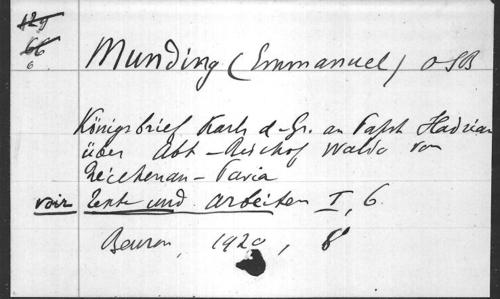 129
66
6
Munding (Emmanuel) OSB
Königsbrief Karls d. Gr. an Papst Hadrian
über Abt-Bischof Waldo von
Reichenau-Pavia
voir Texte und Arbeiten I, 6.
Beuron, 1920, 8°